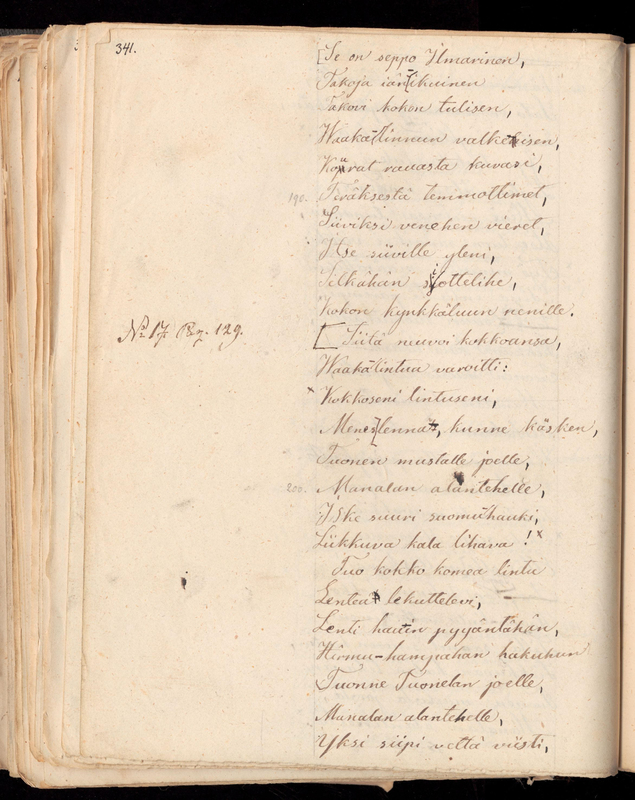 341.
[Se on seppo Ilmarinen,
Takoja iän[ikuinen
Takovi kokon tulisen,
Waakalinnun valkeisen,
Kourat rauasta kuvasi,
190. Teräksestä lemmottimet,
Siiviksi venehen vieret,
Itse siiville yleni,
Selkähän siottelihe,
Kokon kynkkäluun nenille.
No 17 129.
[Siitä neuvoi kokkoansa,
Waakalintua varoitti:
× Kokkoseni lintuseni,
Menes lennä, kunne käsken,
Tuonen mustalle joelle,
200. Manalan alantehelle,
Iske suuri suomuhauki,
Liikkuva kala lihava! ×
Tuo kokko komea lintu
Lenteä lekuttelevi,
Lenti hauin pyyäntähän,
Hirmu-hampahan hakuhun
Tuonne Tuonelan joelle,
Manalan alantehelle,
Yksi siipi vettä viisti,